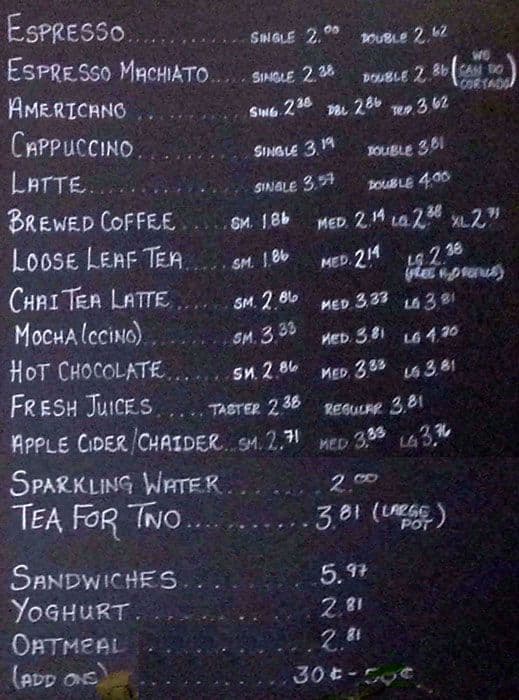 ESPRESSO............ SINGLE 2.00 DOUBLE 2.62
ESPRESSO MACHIATO..... SINGLE 2.38 DOUBLE 2.86 (WE CAN DO CORTADO)
AMERICANO .......... SING. 2.38 DBL 2.86 TRIP. 3.62
CAPPUCCINO.......... SINGLE 3.19 DOUBLE 3.81
LATTE............... SINGLE 3.57 DOUBLE 4.00
BREWED COFFEE ..... SM. 1.86 MED. 2.14 LG 2.38 XL 2.71
LOOSE LEAF TEA..... SM. 1.86 MED. 2.14 LG 2.38
(FREE H2O REFILLS)
CHAI TEA LATTE ..... SM. 2.86 MED 3.33 LG 3.81
MOCHA(CCINO)....... SM. 3.33 MED. 3.81 LG 4.30
HOT CHOCOLATE...... SM. 2.86 MED. 3.33 LG 3.81
FRESH JUICES..... TASTER 2.38 REGULAR 3.81
APPLE CIDER/CHAIDER.. SM. 2.71 MED 3.33 LG 3.76
SPARKLING WATER ....... 2.00
TEA FOR TWO........... 3.81 (LARGE POT)
SANDWICHES......... 5.97
YOGHURT........... 2.81
OATMEAL ........... 2.81
(ADD ONS) .......... 30¢-50¢